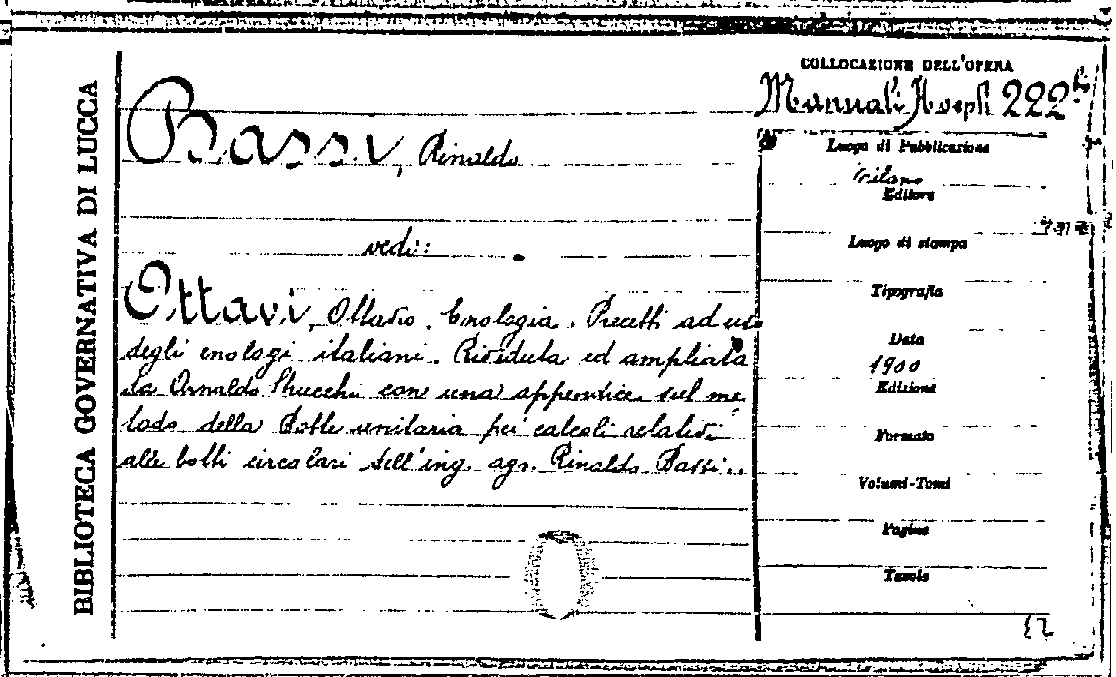 BIBLIOTECA GOVERNATIVA DI LUCCA
Bassi, Rinaldo
vedi:
Ottavi, Ottavio. Enologia. Precetti ad uso
degli enologi italiani. Riveduta ed ampliata
da Arnaldo Strucchi con una appendice sul me-
todo della Botte unitaria pei calcoli relativi
alle botti circolari dell'ing. agr. Rinaldo Bassi..
COLLOCAZIONE DELL'OPERA
Manuali Hoepli 222
Luogo di Pubblicazione
Milano
Editore
Luogo di stampa
Tipografia
Data
1900
Edizione
Formato
Volumi-Tomi
Pagine
Tavole